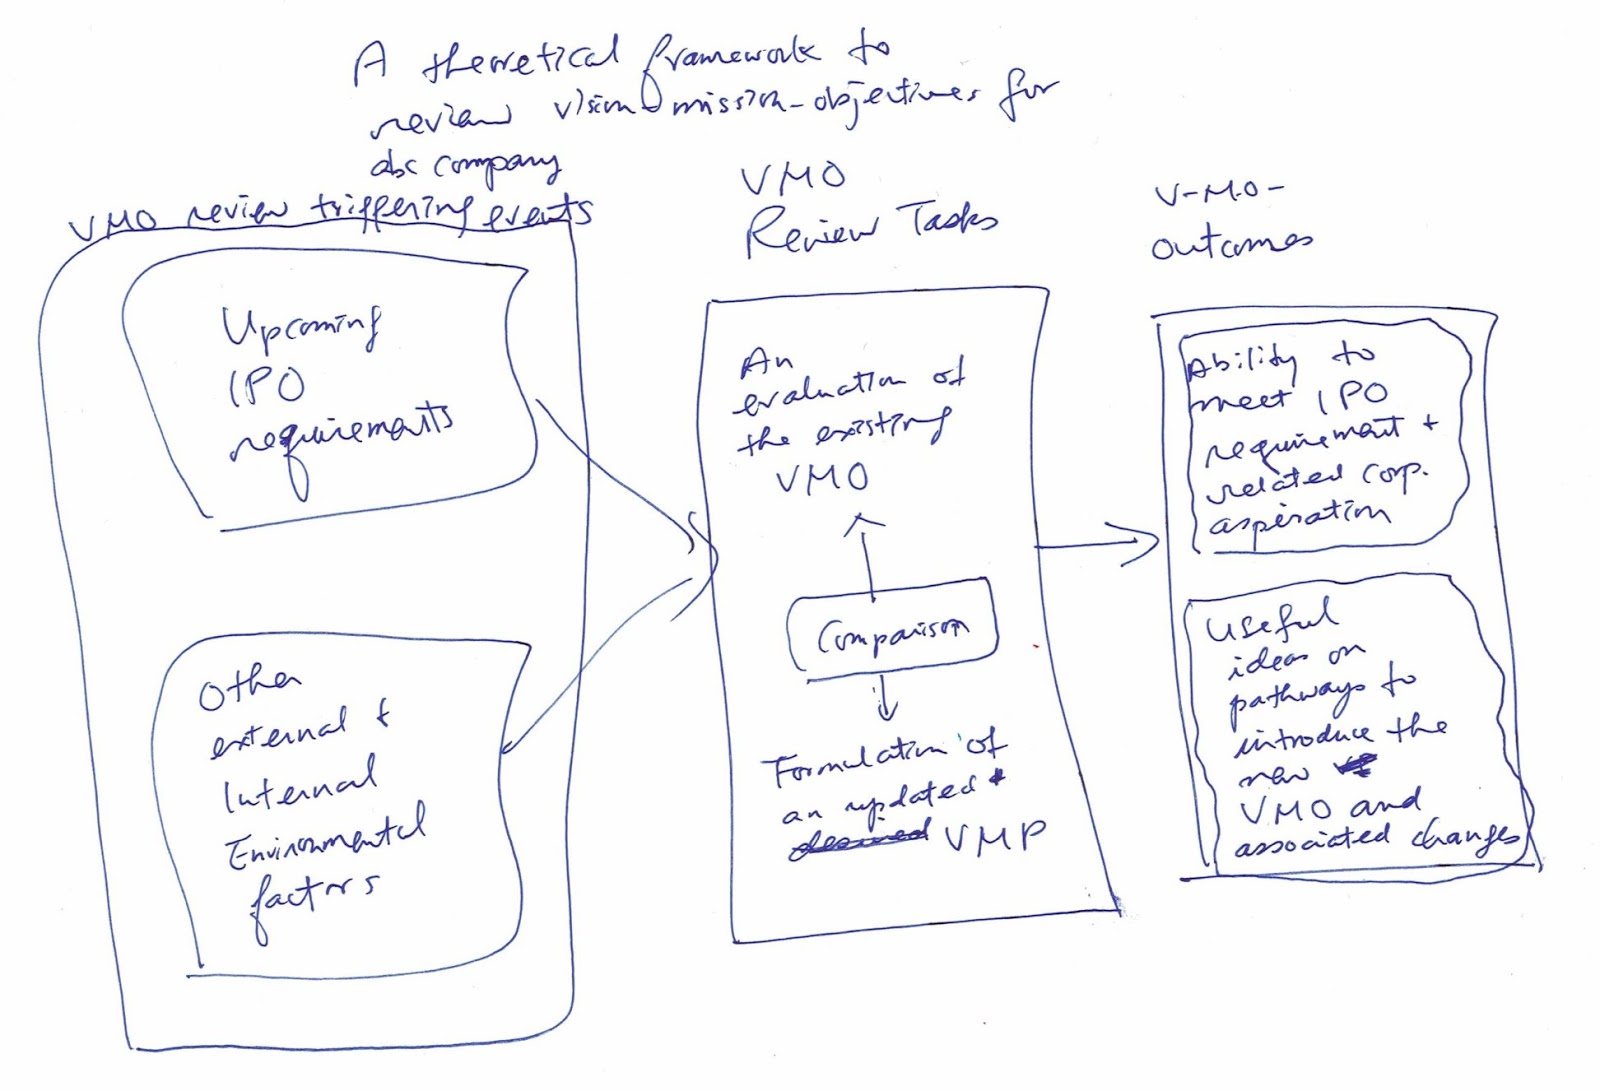 A theoretical framework to
review vision-mission-objectives for
abc company
VMO review triggering events
Upcoming
IPO
requirements
Other
external +
Internal
Environmental
factors
VMO
Review Tasks
An
evaluation of
the existing
VMO
Comparison
Formulation of
an updated +
desired VMP
V-M-O-
outcomes
Ability to
meet IPO
requirement +
related corp.
aspiration
Useful
ideas on
pathways to
introduce the
new
VMO and
associated changes